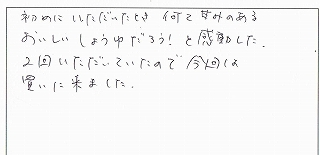 初めにいただいたとき何て甘みのある
おいしいしょうゆだろう！と感動した.
2回いただいていたので今回は
買いに来ました.